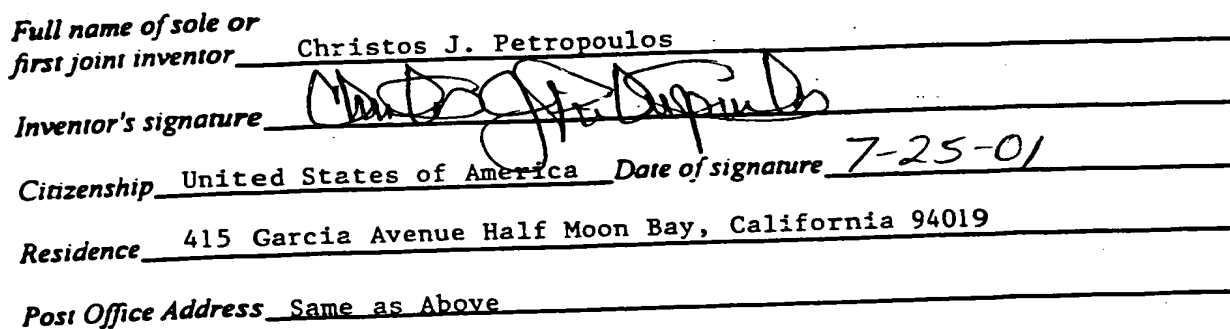 Full name of sole or
first joint inventor Christos J. Petropoulos
Inventor's signature Christos J Petropoulos
Citizenship United States of America Date of signature 7-25-01
Residence 415 Garcia Avenue Half Moon Bay, California 94019
Post Office Address Same as Above